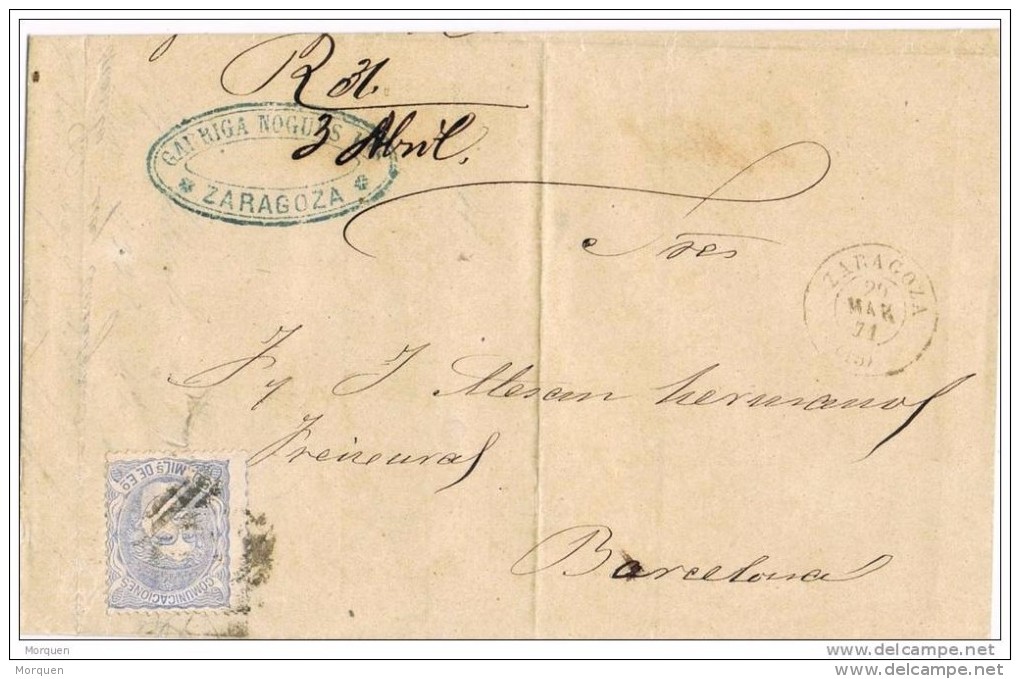 R 31.
3 Abril.
GARRIGA NOGUÉS
ZARAGOZA
Sres
ZARAGOZA
29
MAR
71
F y J Alesan hermanos
Barcelona
MILS DE EO.
COMUNICACIONES
Morquen
Morquen
www.delcampe.net
www.delcampe.net